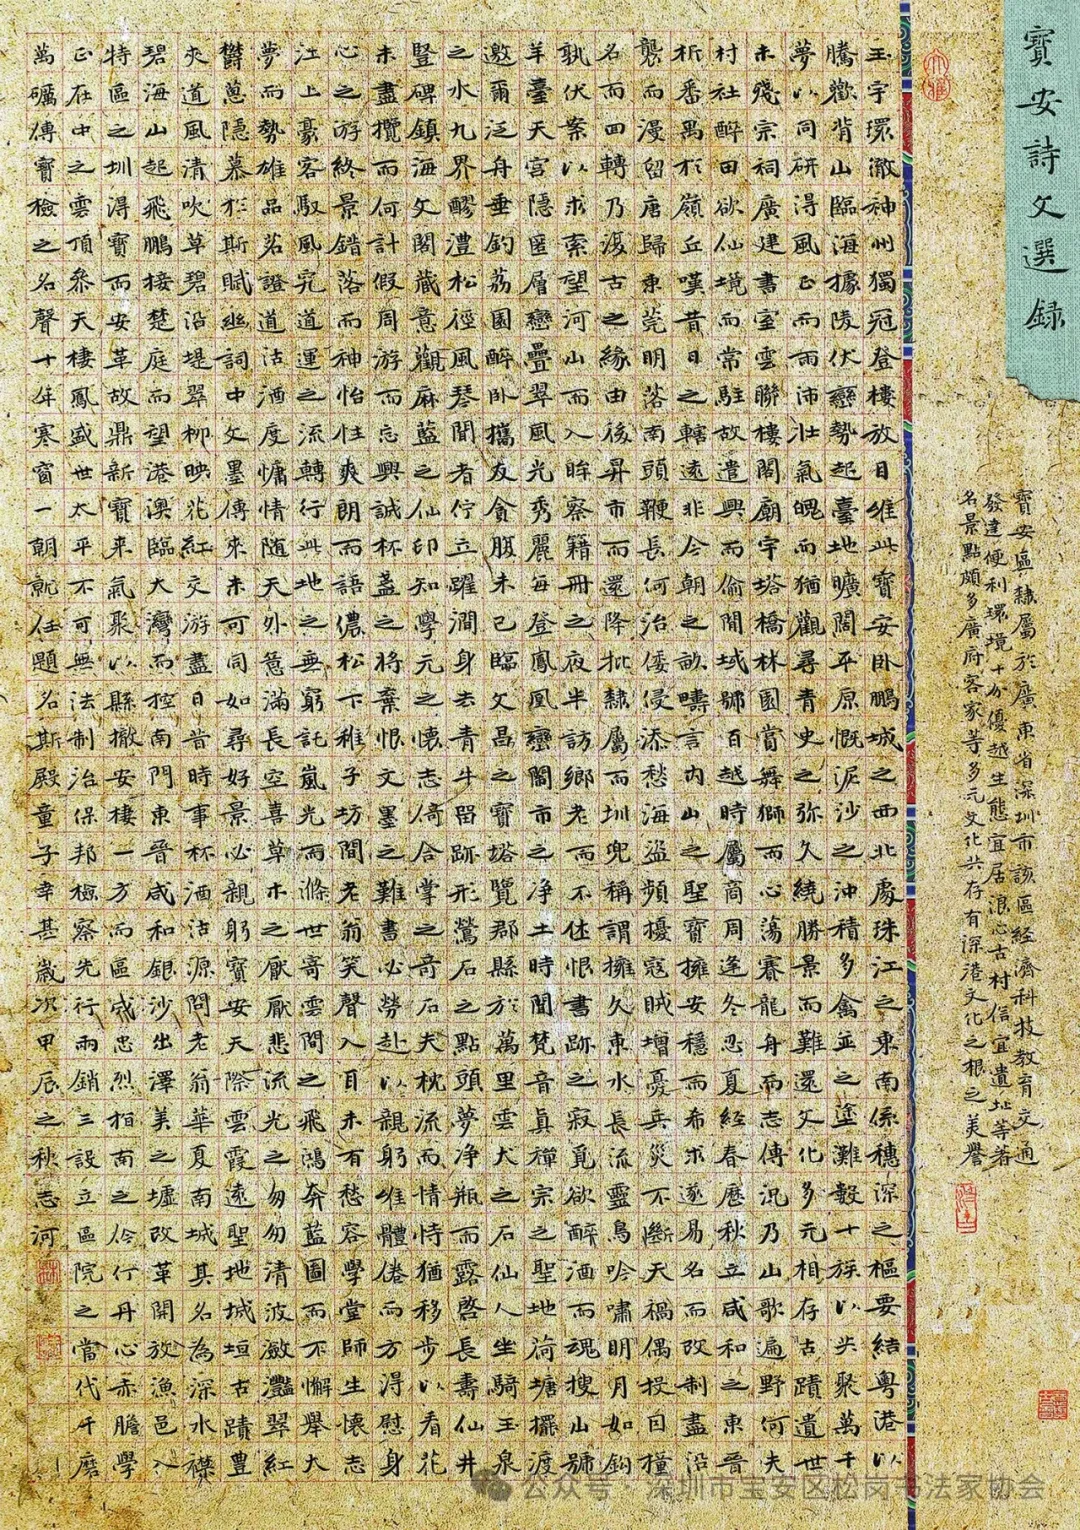 寶安詩文選録
寶安區隸屬於廣東省深圳市該區經濟科技教育交通
發達便利環境十分優越生態宜居浪心古村信宜遺址等著
名景點頗多廣府客家等多元文化共存有深渣文化之根之美譽
玉宇環澈神州獨冠登樓放目維此寶安卧鵬城之西北處珠江之東南係穗深之樞要結粤港以
騰歡背山臨海據陵伏巒勢起臺地曠闊平原慨泥沙之沖積多禽並之塗灘數十族以共聚萬千
夢以同研得風正而雨沛壯氣魄而猶觀尋青史之弥久繞勝景而難還文化多元相存古蹟遺世
未殘宗祠廣建書室雲聯樓閣廟宇塔橋林園賞舞獅而心蕩賽龍舟而志傳況乃山歌遍野何夫
村社醉田欲仙境而常駐故遣興而偷閒域號百越時屬商周逢冬忍夏經春歷秋立咸和之東晉
析番禺於嶺丘嘆昔日之轄遠非今朝之畝疇言内山之聖寶擁安穩而希求遂易名而改制盡沿
襲而漫留唐歸東莞明落南頭鞭長何治倭侵添愁海盗頻擾寇賊增憂兵災不斷天禍偶投自橦
名而四轉乃復古之緣由後昇市而還降批隸屬而圳兜稱謂擁久東水長流靈鳥吟嘯明月如鈎
孰伏案以求索望河山而入眸察籍冊之夜半訪鄉老而不住恨書跡之寂覓欲醉酒而魂搜山號
羊臺天宮隱匿層巒疊翠風光秀麗每登鳳凰巒闔市之净土時聞梵音真禪宗之聖地荷塘擺渡
邀爾泛舟垂釣荔園醉卧攜友貪腹未已臨文昌之寶塔覽郡縣於萬里雲犬之石仙人坐騎玉泉
之水九界醪澧松徑風琴聞者佇立躍澗身去青牛留跡形鶯石之點頭夢净瓶而露啓長壽仙井
豎碑鎮海文閣藏意觀麻藍之仙印知學元之懷志倚合掌之奇石夫枕流而情恃猶移步以看花
未盡攬而何計假周游而忘興誠杯盞之將棄恨文墨之難書必勞赴以親躬唯體倦而方得慰身
心之游終景錯落而神怡性爽朗而語儂松下稚子坊間老翁笑聲入目未有愁容學堂師生懷志
江上豪客馭風究道運之流轉行此地之無窮託嵐光而滌世寄雲間之飛鴻奔藍圖而不懈舉大
夢而勢雄品茗證道沽酒度慵情随天外意滿長空喜草木之厭厭悲流光之匆匆清波瀲灩翠紅
欝蔥隱慕於斯賦幽詞中文墨傳來未可同如尋好景必親躬寶安天際雲霞遠聖地城垣古蹟豊
夾道風清吹草碧沿堤翠柳映花紅交游盡日昔時事杯酒沽源問老翁華夏南城其名為深水襟
碧海山起飛鵬接楚庭而望港澳臨大灣而控南門東晉咸和銀沙出澤美之墟改革開放漁邑入
特區之圳得寶而安革故鼎新寶來氣聚以縣撤安棲一方而區成忠烈柏南之伶仃丹心赤膽學
正在中之雲頂叅天棲鳳盛世太平不可無法制治保邦檢察先行兩銷三設立區院之當代千磨
萬礪傳寶檢之名聲十年寒窗一朝就任題名斯殿童子幸甚嵗次甲辰之秋志河
公众号·深圳市宝安区松岗书法家协会